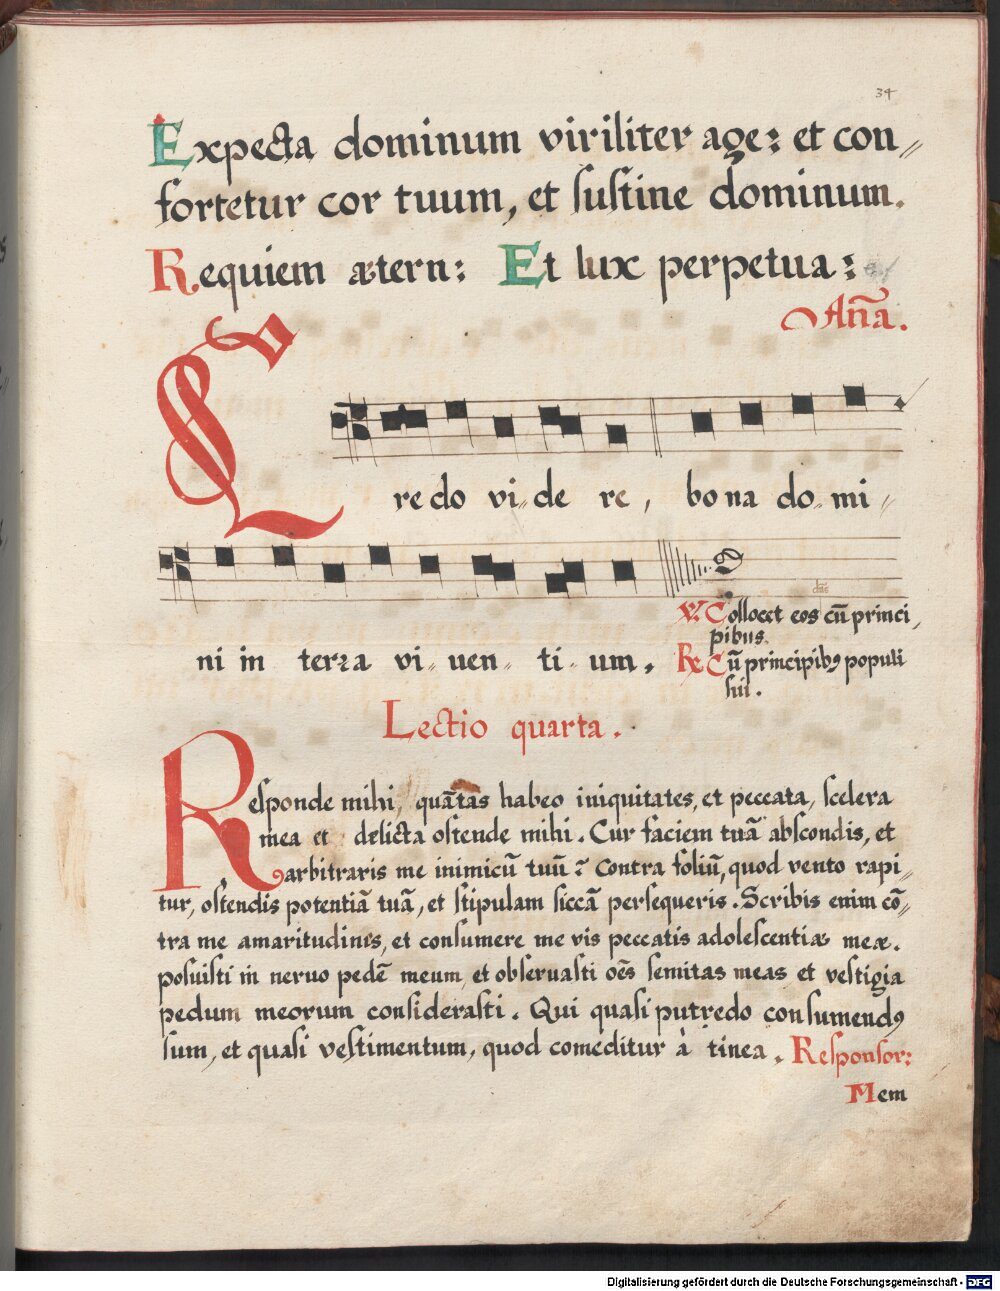 34
Expecta dominum viriliter age: et con„
fortetur cor tuum, et ſuſtine dominum.
Requiem ætern: Et lux perpetua:
Aña.
Credo vi„de re, bona do„mi„
ni in terra vi„uen„ti„um.
℣. Collocet eos cū princi,
pibus.
℟ Cū principibꝰ populi
ſui.
Lectio quarta.
Reſponde mihi, quātas habeo iniquitates, et peccata, ſcelera
mea et delicta oſtende mihi. Cur faciem tuā abſcondis, et
arbitraris me inimicū tuū? Contra foliū, quod vento rapi„
tur, oſtendis potentiā tuā, et ſtipulam ſiccā perſequeris. Scribis enim cō„
tra me amaritudines, et conſumere me vis peccatis adoleſcentiæ meæ.
poſuiſti in neruo pedē meum, et obſeruaſti oēs ſemitas meas et veſtigia
pedum meorum conſideraſti. Qui quaſi putredo conſumendꝰ
ſum, et quaſi veſtimentum, quod comeditur à tinea. Reſponſor:
Mem
Digitalisierung gefördert durch die Deutsche Forschungsgemeinschaft - DFG